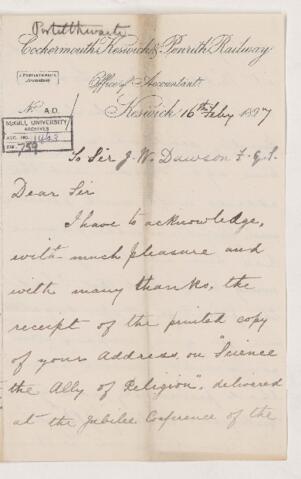 Postlethwaite
Cockermouth, Keswick & Penrith Railway
J. POSTLETHWAITE,
Accountant.
Office of Accountant.
No. A.D.
Keswick 16th Feby 1897
McGILL UNIVERSITY
ARCHIVES
ACC. NO. 1463
REF. 759
To Sir J. W. Dawson F. G. S.
Dear Sir
I have to acknowledge,
with much pleasure and
with many thanks, the
receipt of the printed copy
of your Address, on "Science
the Ally of Religion", delivered
at the Jubilee Conference of the